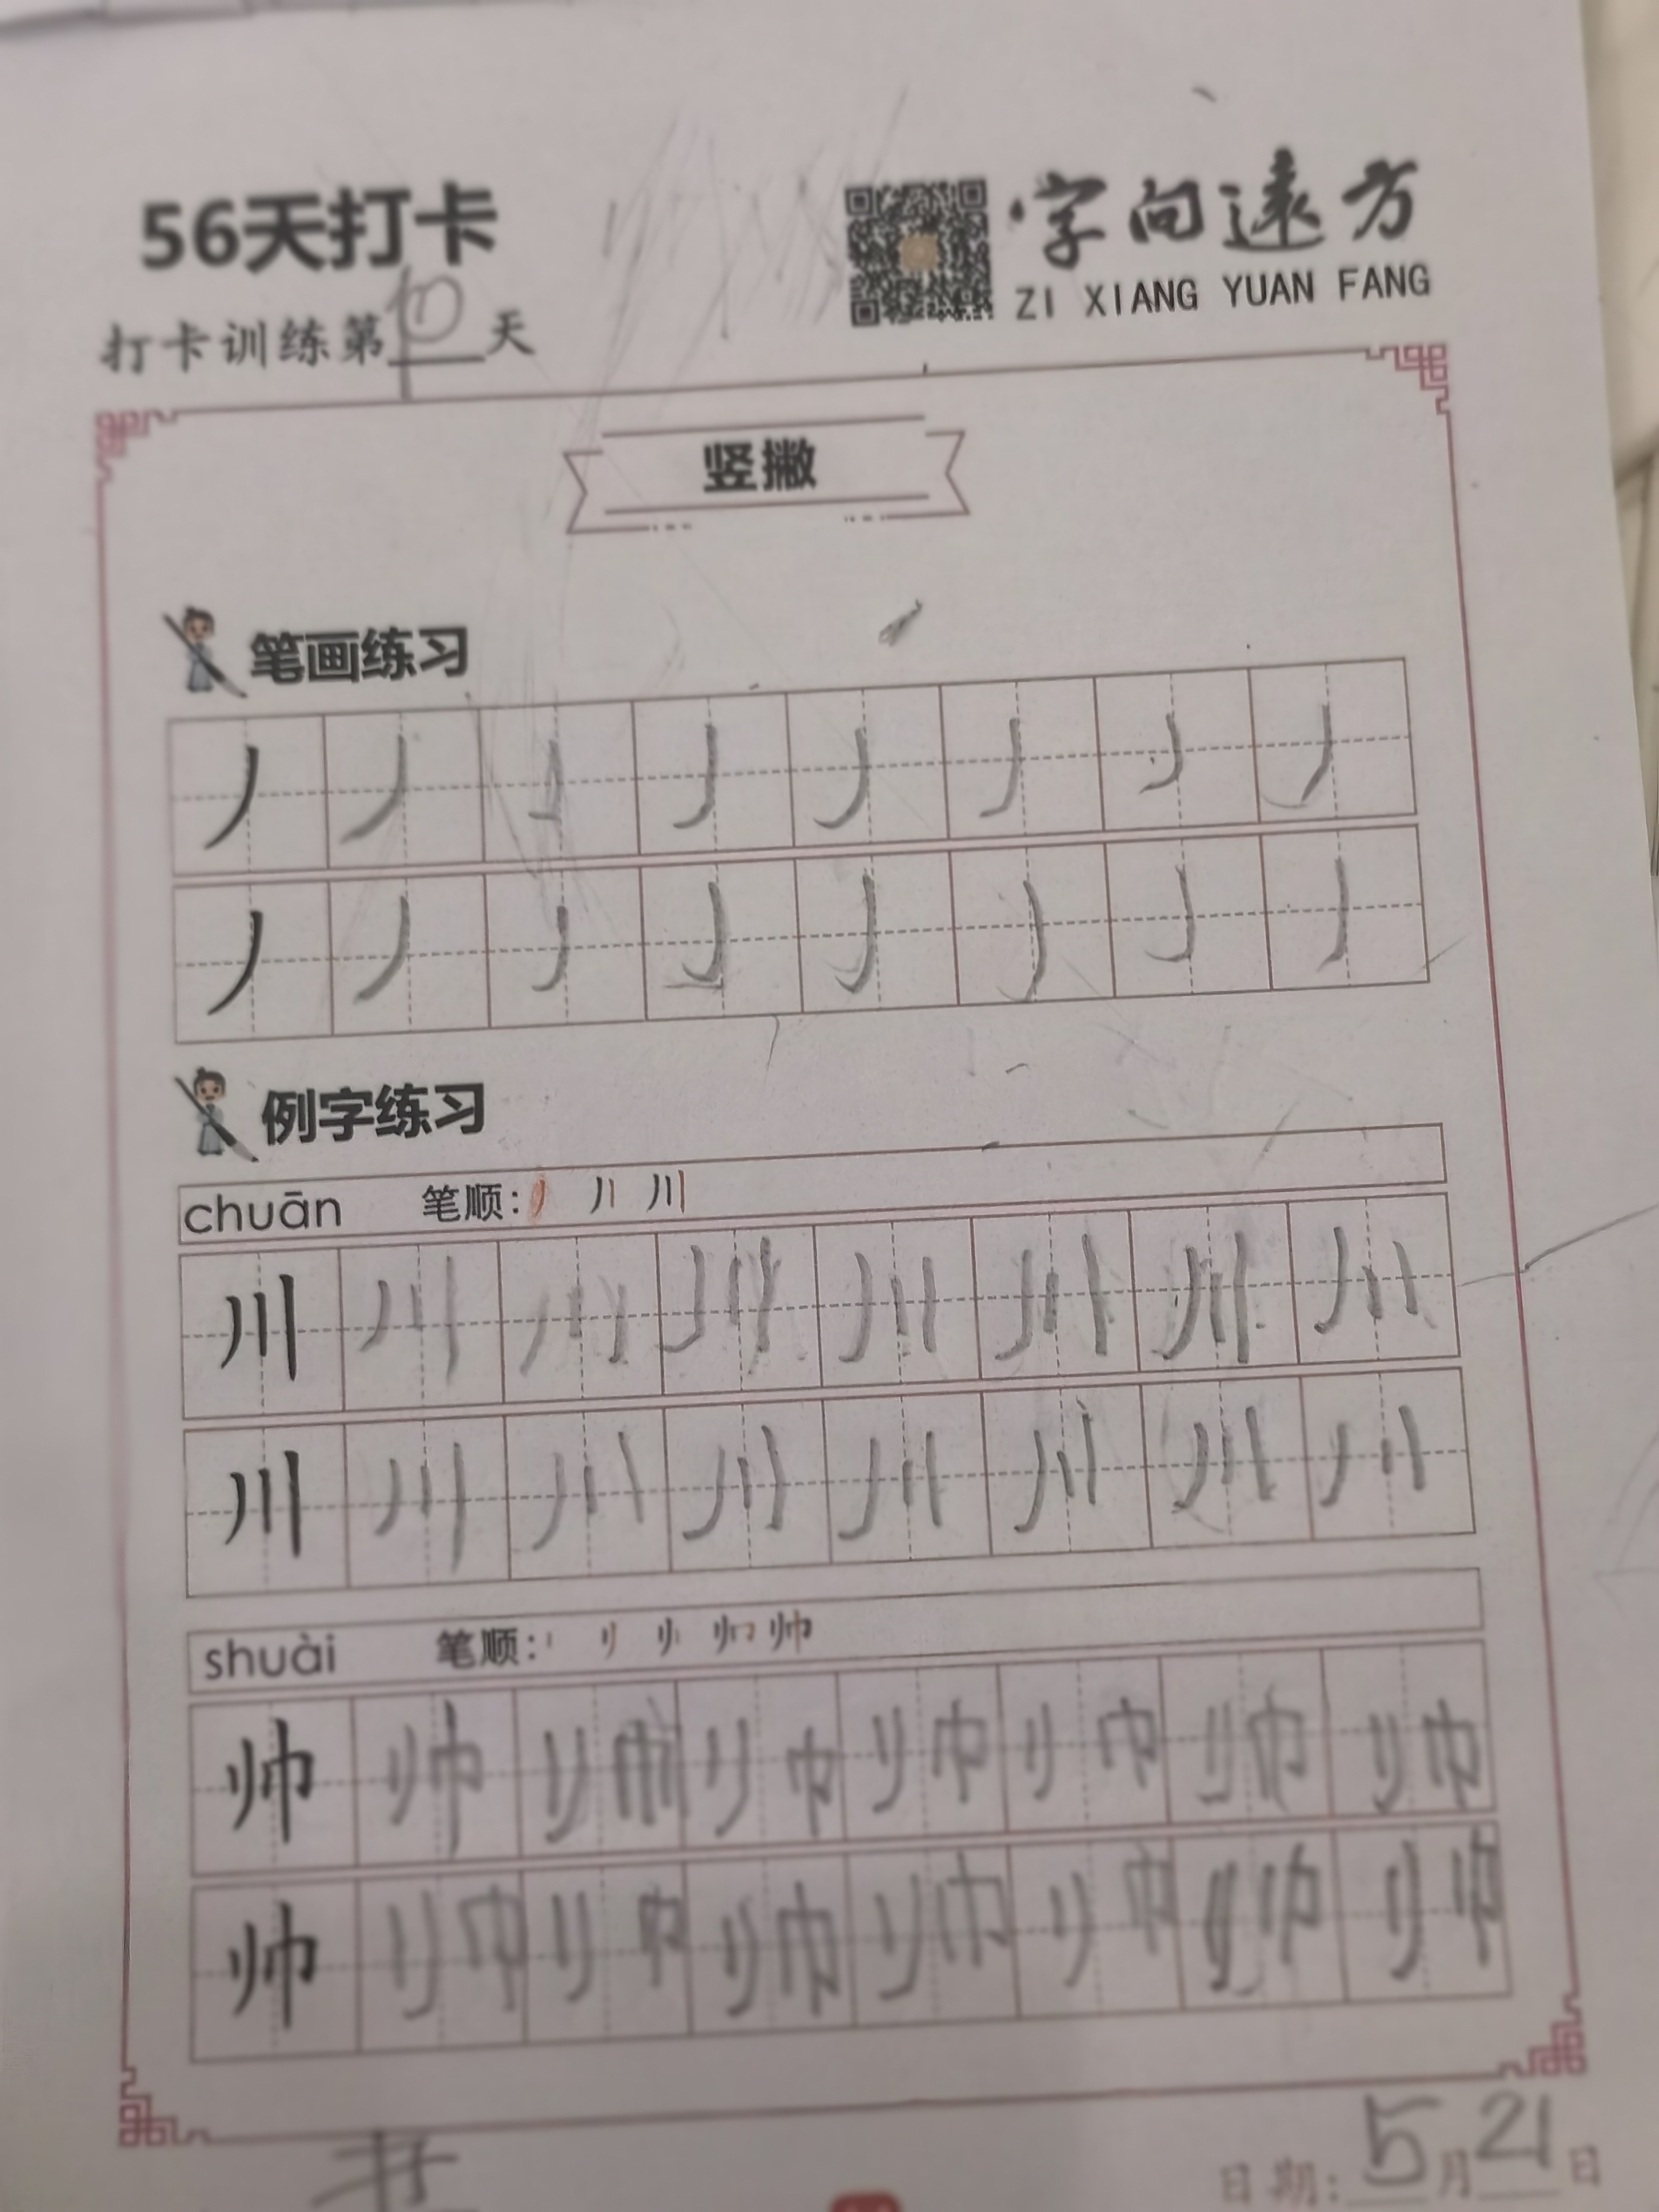 56天打卡
字向遠方
ZI XIANG YUAN FANG
打卡训练第10天
竖撇
笔画练习
丿 丿 丿 丿 丿 丿 丿 丿
丿 丿 丿 丿 丿 丿 丿 丿
例字练习
chuān 笔顺: 丿 丿丨 川
川 川 川 川 川 川 川 川
川 川 川 川 川 川 川 川
shuài 笔顺: 帅
帅 帅 帅 帅 帅 帅 帅 帅
帅 帅 帅 帅 帅 帅 帅 帅
日期: 5月21日